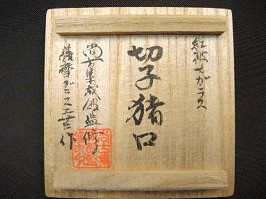 紅被せガラス
切子猪口
尚古集成館監修
薩摩ガラス工芸作